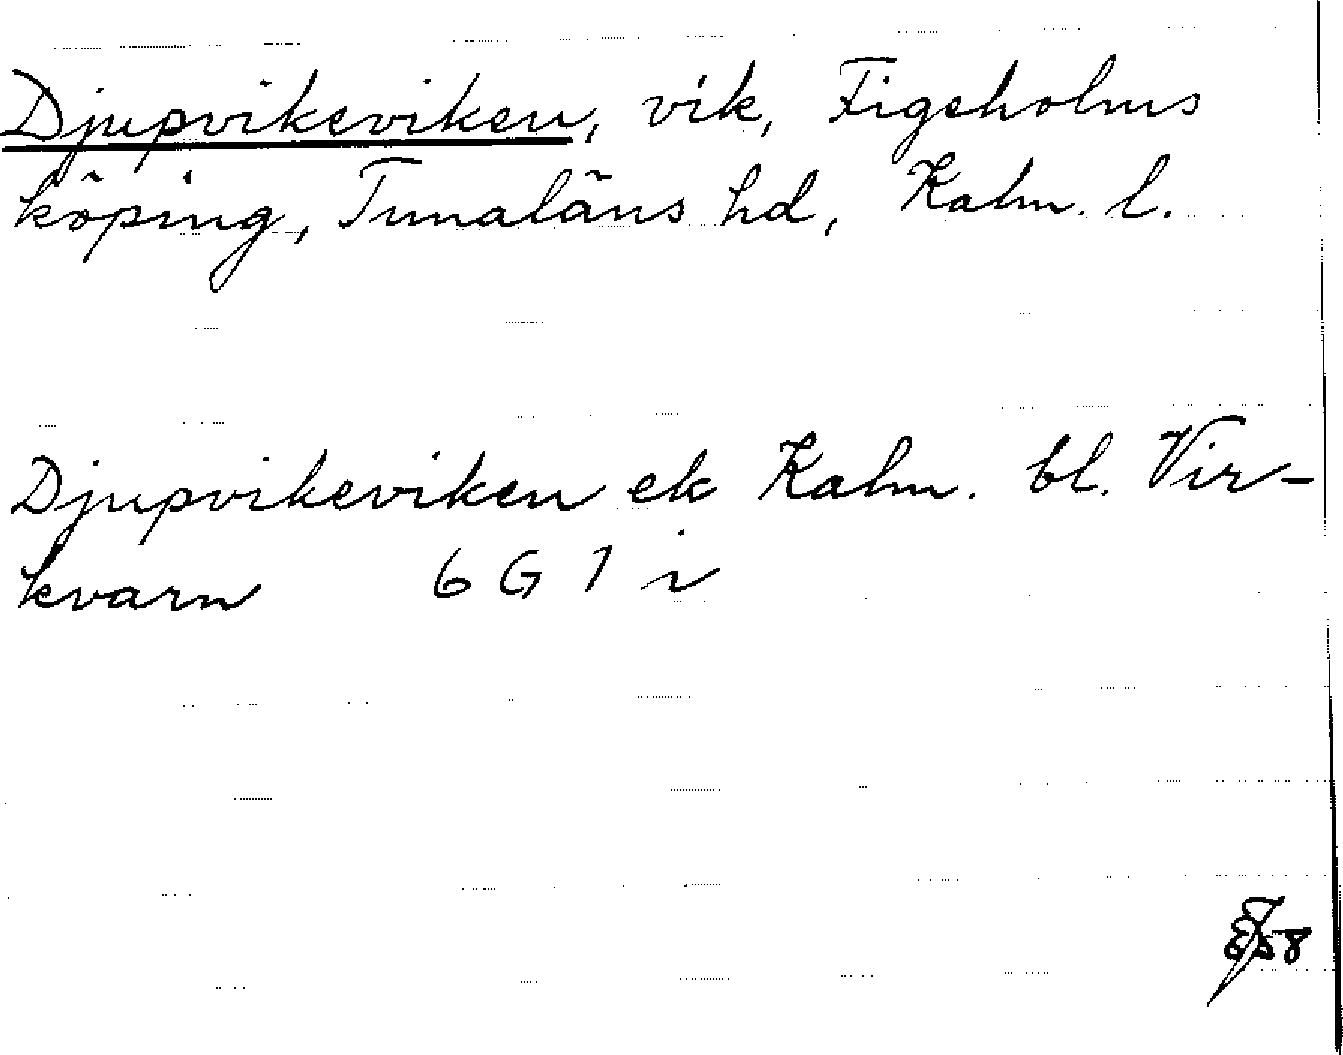 Djupvikeviken, vik, Figeholms
köping, Tunaläns hd, Kalm. l.
Djupvikeviken ek Kalm. bl. Vir-
kvarn 6 G 7 i